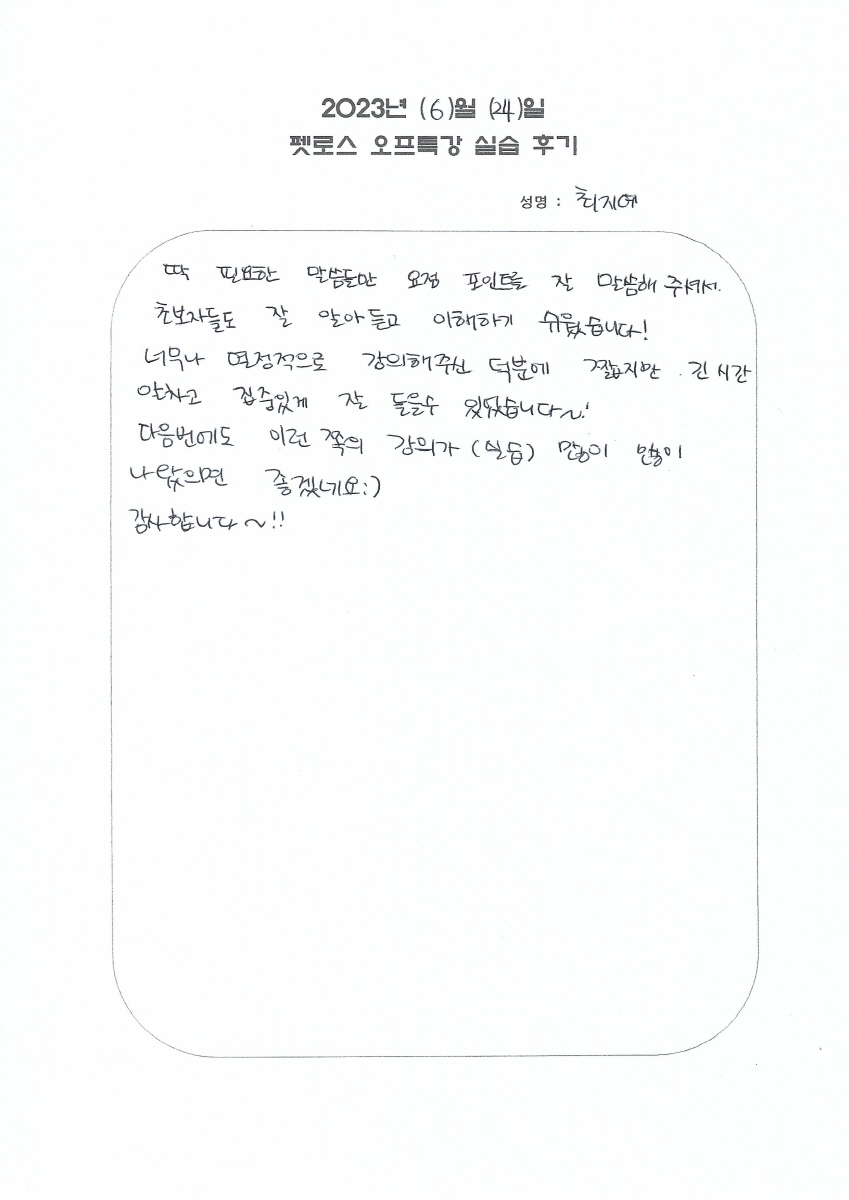 2023년 (6)월 (24)일
펫로스 오프특강 실습 후기
성명 : 최지예
딱 필요한 말씀들만 요점 포인트를 잘 말씀해 주셔서.
초보자들도 잘 알아듣고 이해하기 쉬웠습니다!
너무나 열정적으로 강의해주신 덕분에 짧지만. 긴 시간
알차고 집중있게 잘 들을수 있었습니다~!
다음번에도 이런 쪽의 강의가 (실습) 많이 많이
나왔으면 좋겠네요:)
감사합니다~!!